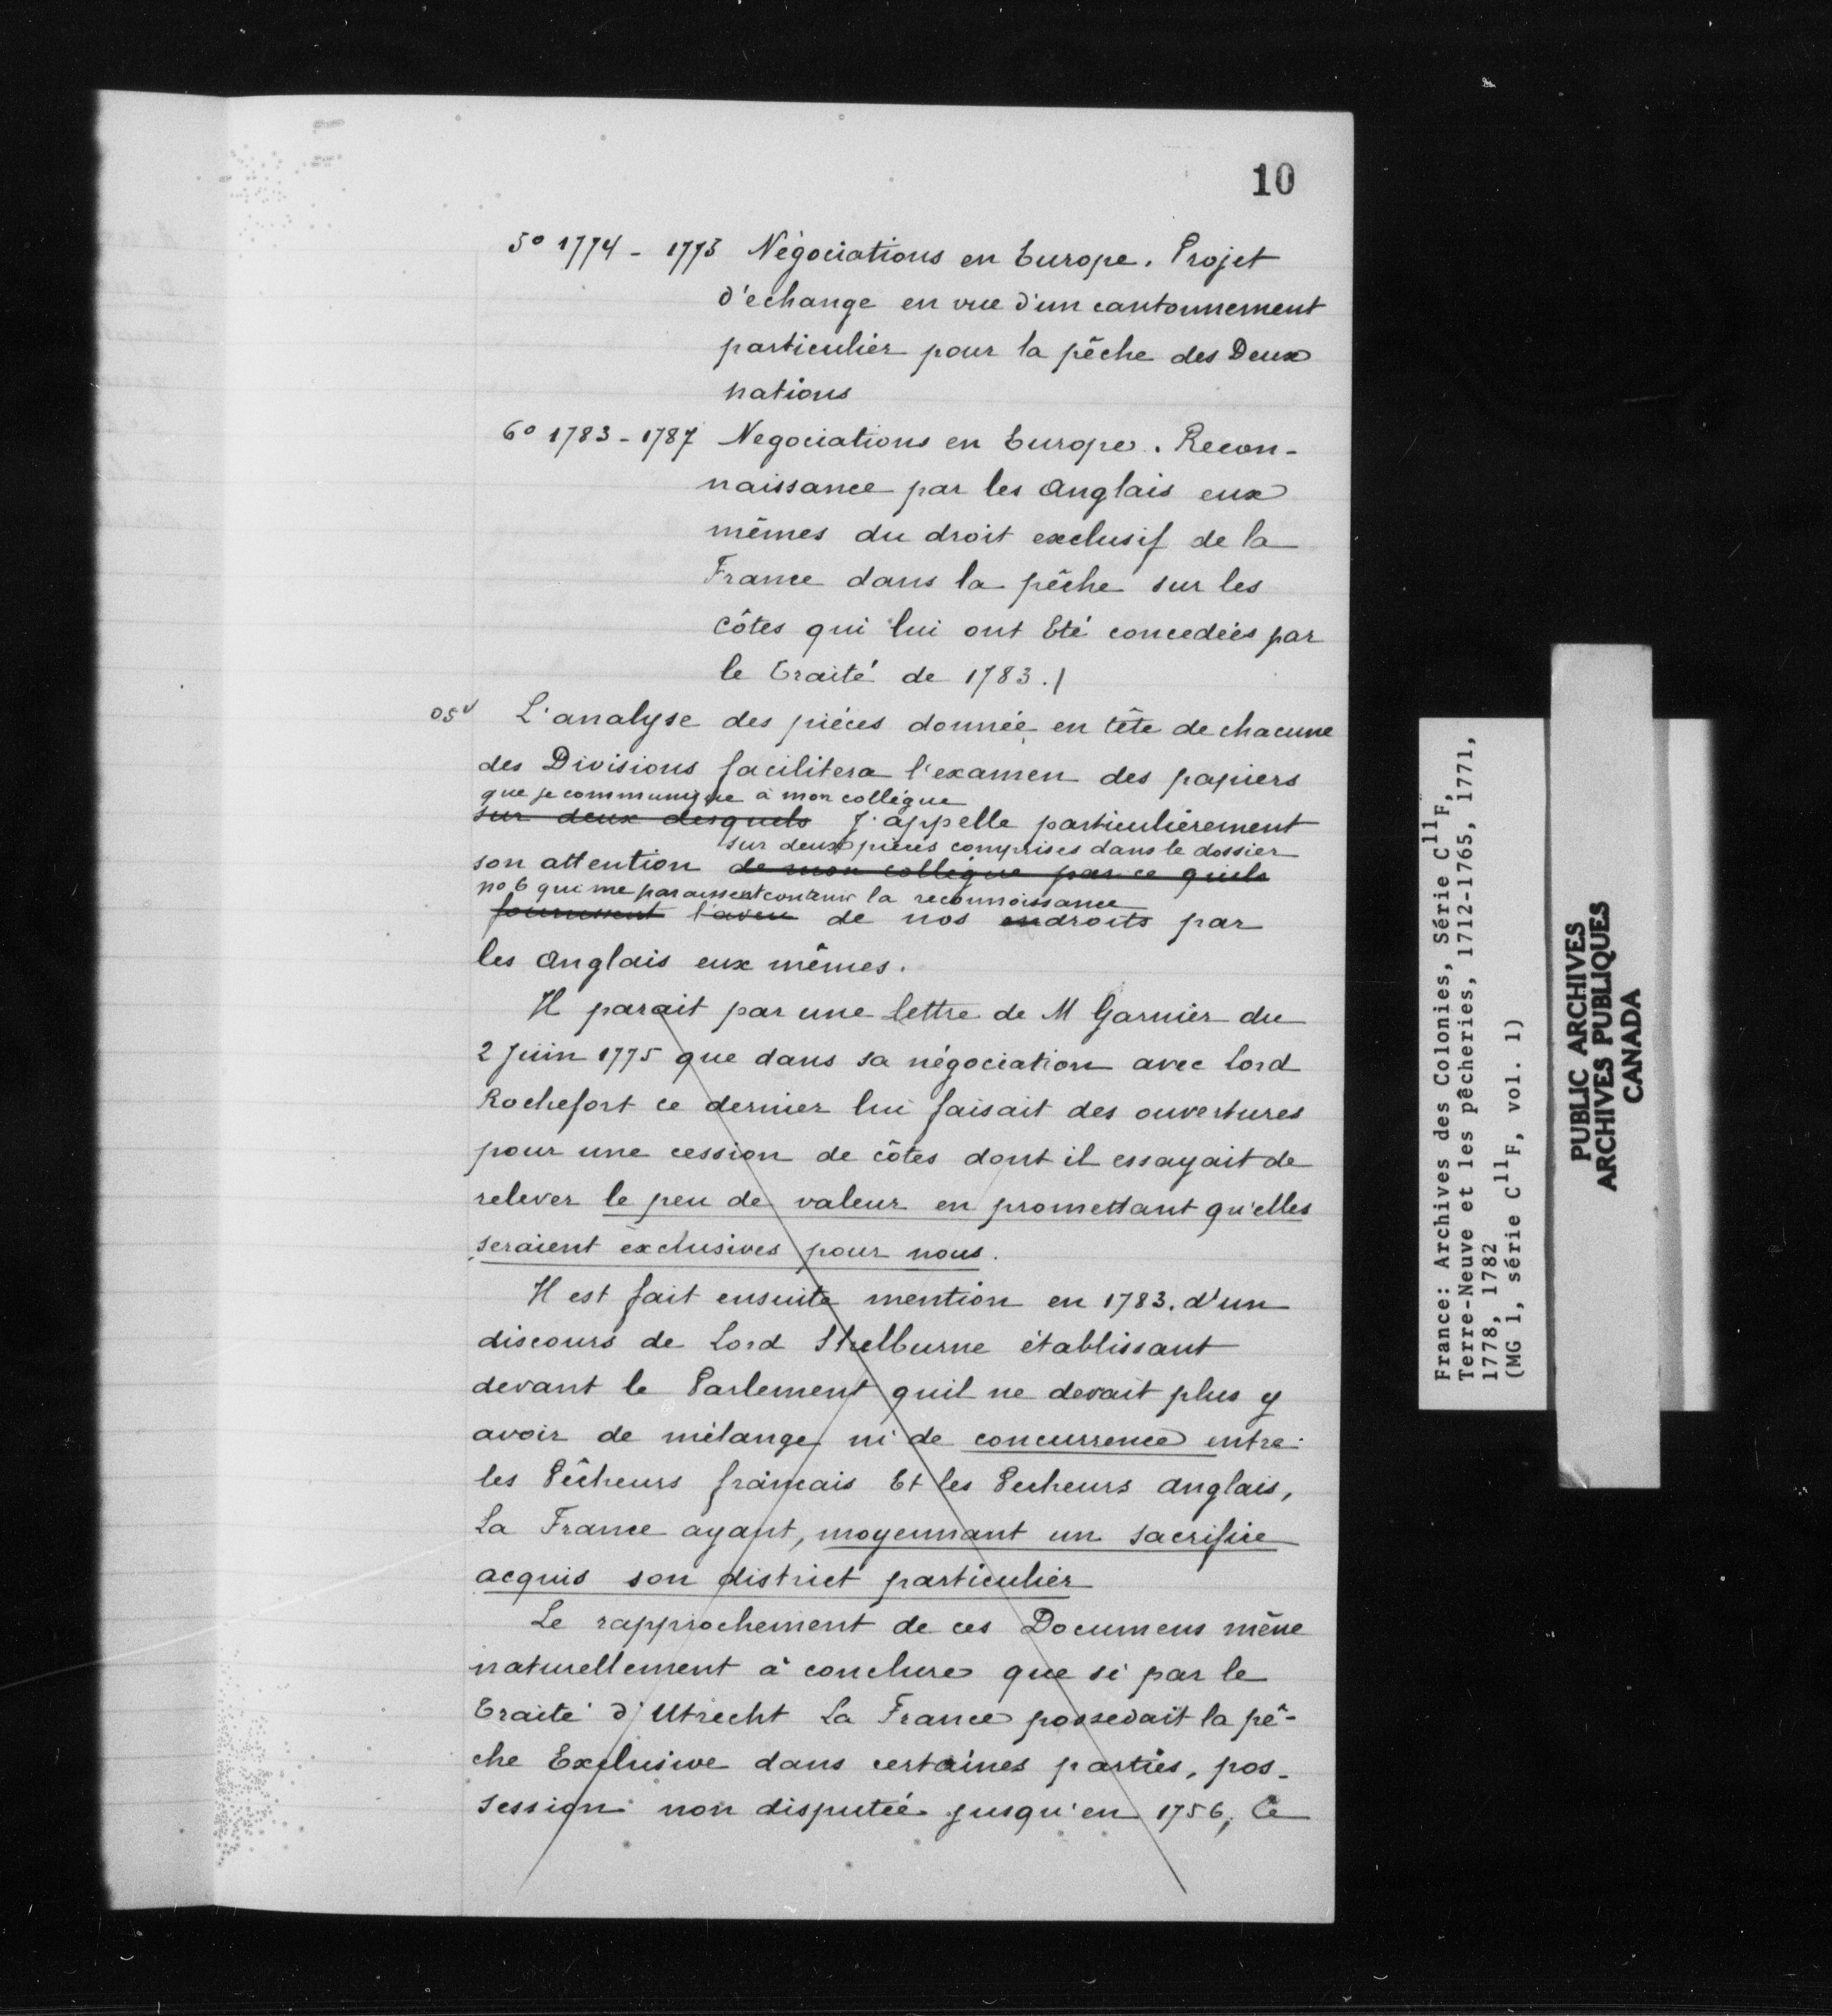 10
5º 1774 - 1775 Négociations en Europe. Projet
d'echange en vue d'un cantonnement
particulier pour la pêche des Deux
nations
6º 1783 - 1787 Negociations en Europe. Recon-
naissance par les Anglais eux
mêmes du droit exclusif de la
France dans la pêche sur les
côtes qui lui ont Eté concedées par
le Traité de 1783./
05v L'analyse des piéces donnée en tête de chacune
des Divisions facilitera l'examen des papiers
que je communique à mon collégue
sur deux desquels J'appelle particulièrement
sur deux piéces comprises dans le dossier
son attention de mon collégue parce quils
no 6 qui me paraissent contenir la reconnoissance
fournissent l'aveu de nos droits par
les Anglais eux mêmes.
Il parait par une lettre de M Garnier du
2 Juin 1775 que dans sa négociation avec Lord
Rochefort ce dernier lui faisait des ouvertures
pour une cession de côtes dont il essayait de
relever le peu de valeur en promettant qu'elles
seraient exclusives pour nous.
Il est fait ensuite mention en 1783. d'un
discours de Lord Shelburne établissant
devant le Parlement quil ne devait plus y
avoir de mélange ni de concurrence entre
les Pêcheurs français Et les Pecheurs Anglais,
La France ayant, moyennant un sacrifice
acquis son district particulier
Le rapprochement de ces Documens mène
naturellement à conclure que si par le
Traité d'Utrecht La France possedait la pê-
che Exclusive dans certaines parties, pos-
session non disputée jusqu'en 1756, Ce
France: Archives des Colonies, Série C11F,
Terre-Neuve et les pêcheries, 1712-1765, 1771,
1778, 1782
(MG 1, série C11F, vol. 1)
PUBLIC ARCHIVES
ARCHIVES PUBLIQUES
CANADA